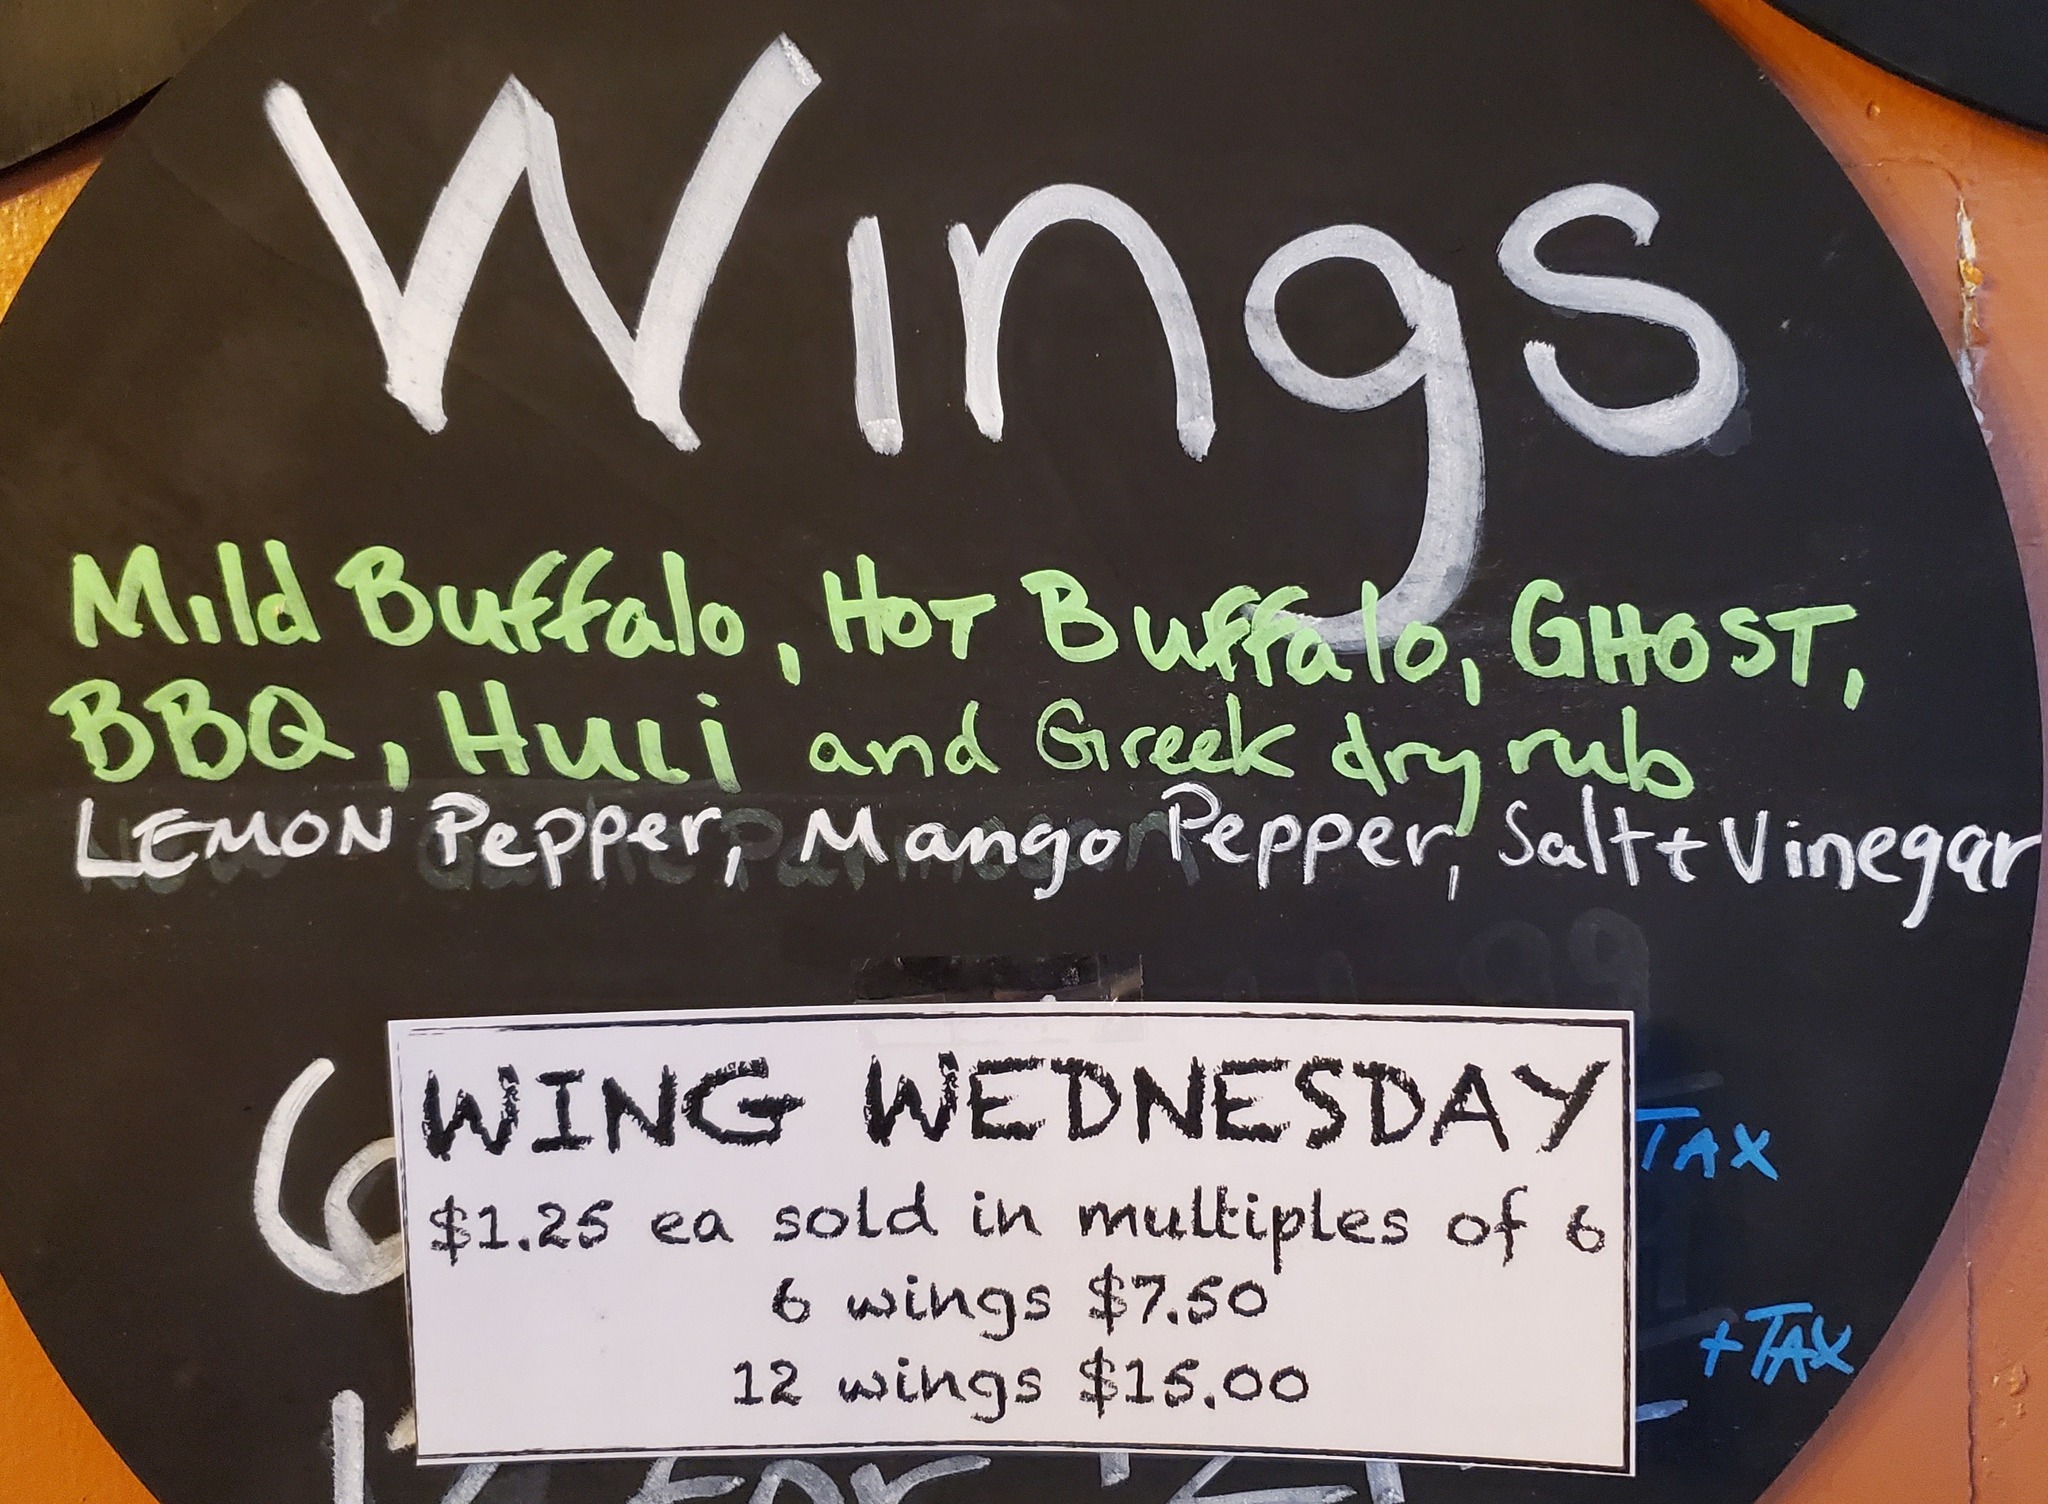 Wings
Mild Buffalo, HOT Buffalo, GHOST,
BBQ, HULi and Greek dry rub
LEMON Pepper, Mango Pepper, Salt + Vinegar
WING WEDNESDAY
6
TAX
$1.25 ea sold in multiples of 6
6 wings $7.50
+ TAX
12 wings $15.00